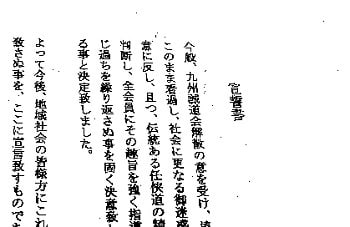 宣誓書
今般、九州誠道会解散の意を受け、
このまま看過し、社会に更なる御迷惑
意に反し、且つ、伝統ある任侠道の
判断し、全会員にその趣旨を強く指
じ過ちを繰り返さぬ事を固く決意致
る事と決定致しました。
よって今後、地域社会の皆様方にこれ
致さぬ事を、ここに宣言致すもので